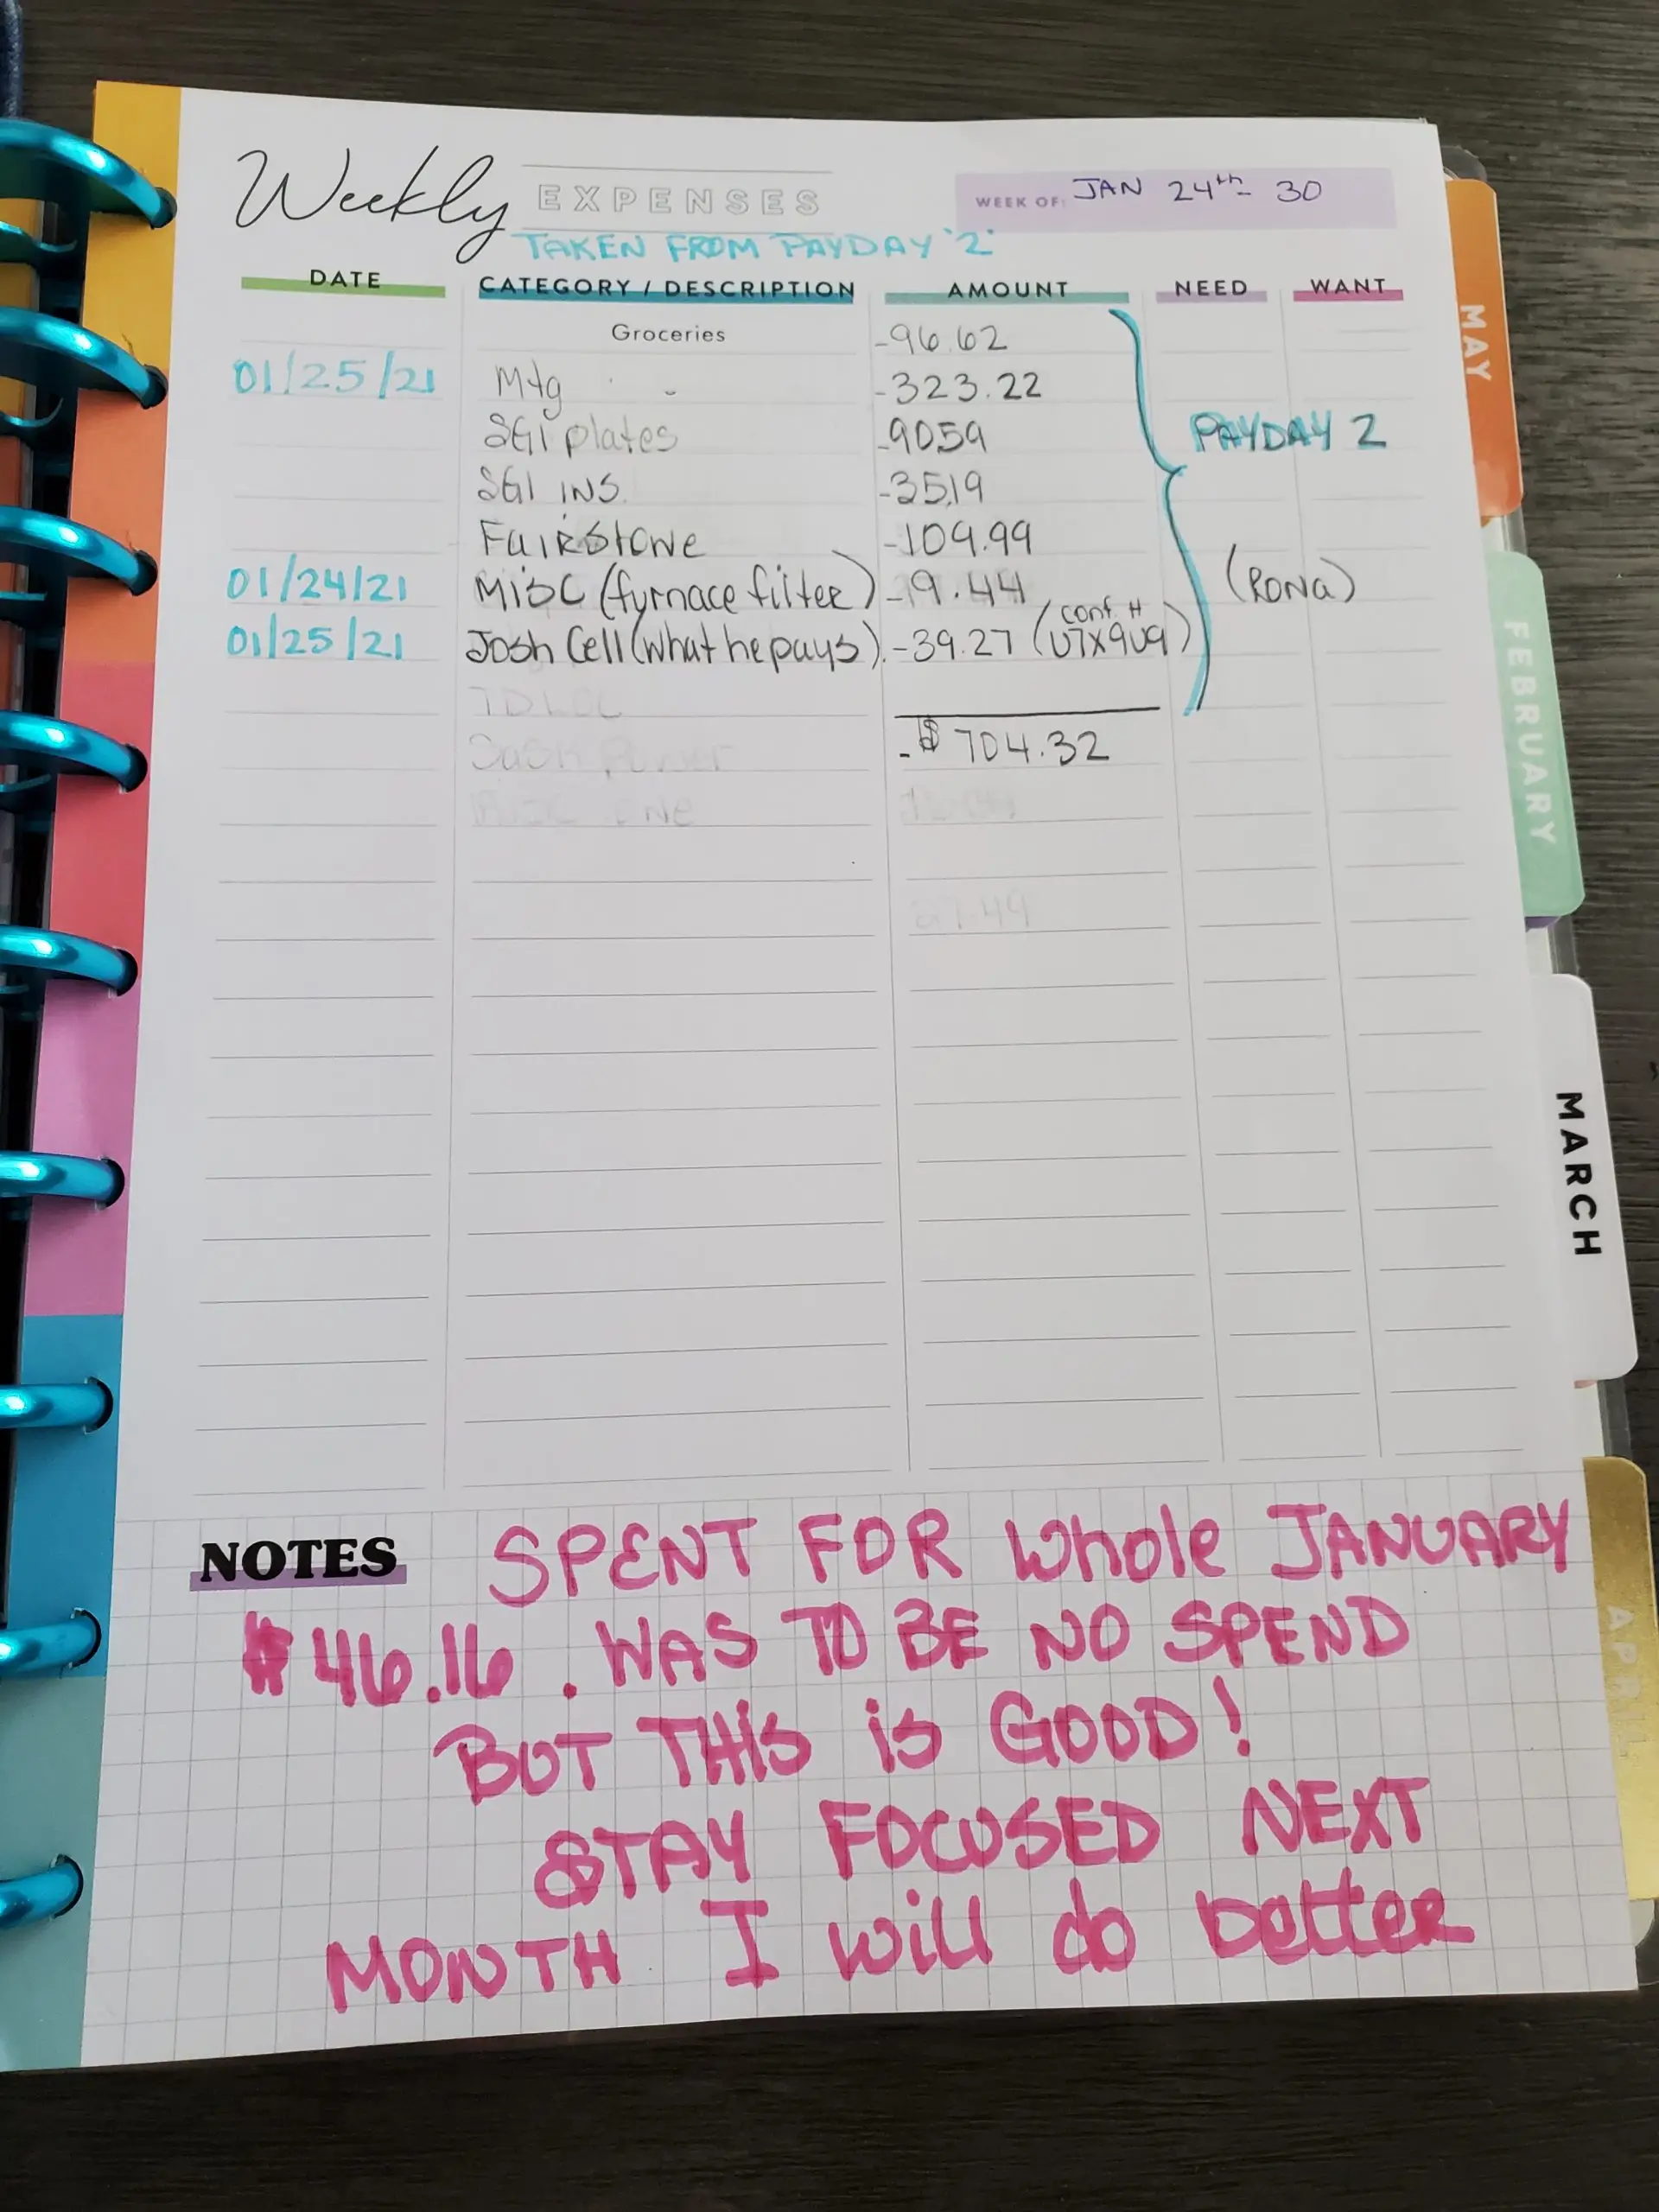 Weekly EXPENSES WEEK OF: JAN 24th - 30
TAKEN FROM PAYDAY "2"
DATE CATEGORY / DESCRIPTION AMOUNT NEED WANT
Groceries -96.62
01/25/21 Mtg - -323.22
SGI plates -90.59 PAYDAY 2
SGI INS. -35.19
FairStone -109.99
01/24/21 Misc (furnace filter) -9.44 (RONA)
conf. #
01/25/21 Josh Cell (what he pays). -39.27 (U7X9U9)
TD LOC
Sask Power -$ 704.32
27.49
NOTES SPENT FOR Whole JANUARY
$46.16. WAS TO BE NO SPEND
BUT THIS is GOOD!
STAY FOCUSED NEXT
MONTH I will do better
MAY
FEBRUARY
MARCH
APRIL